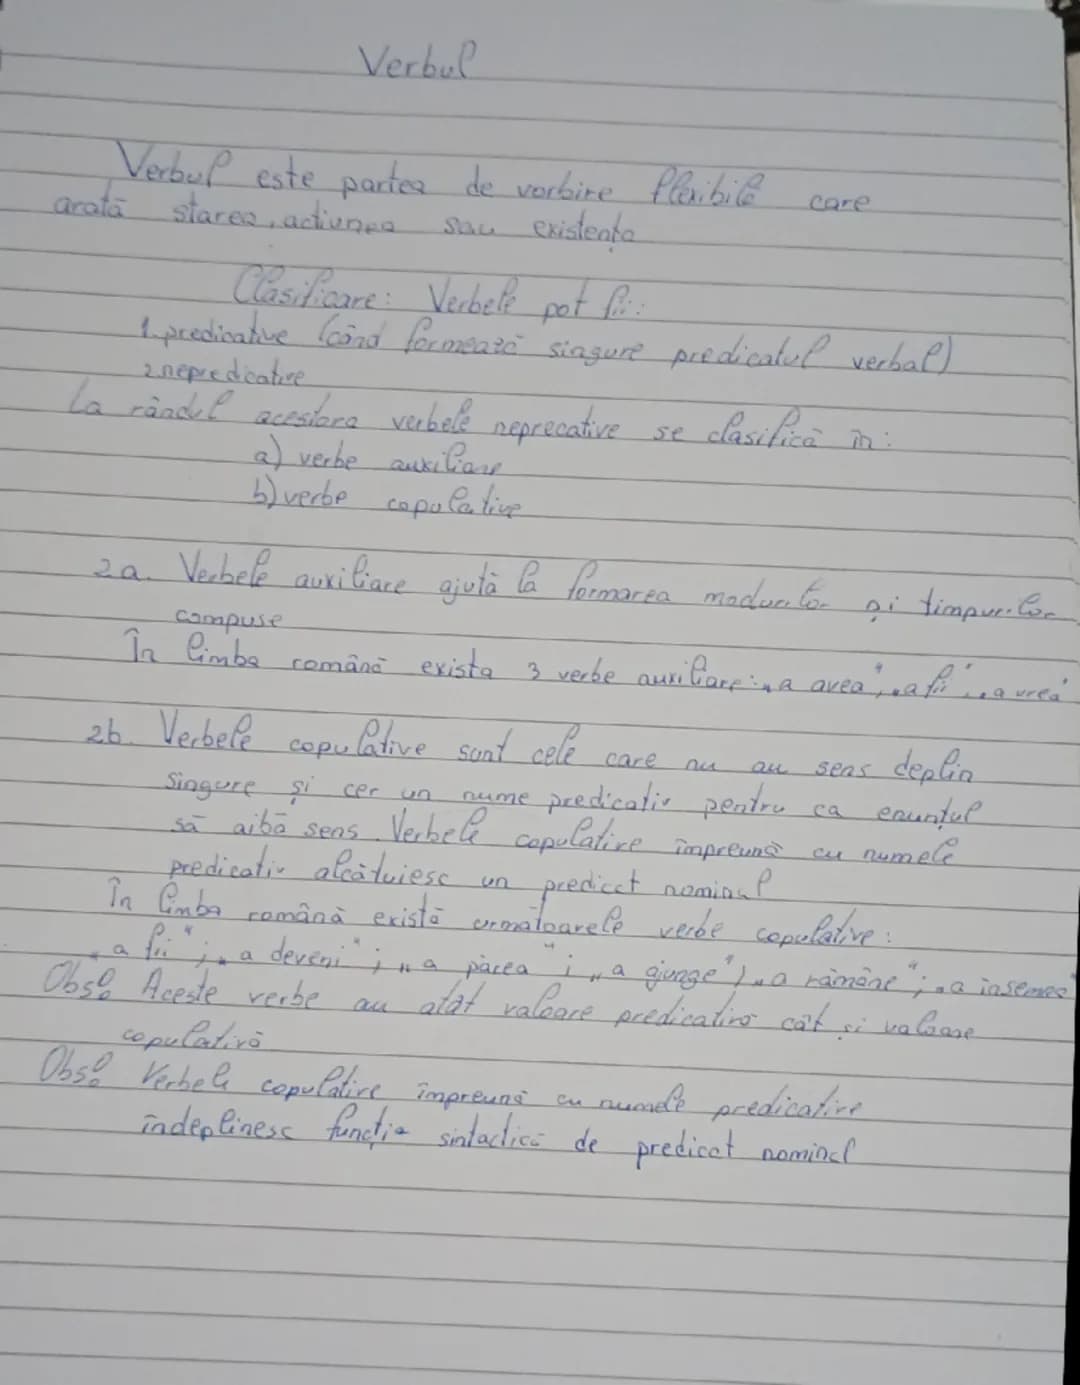 Verbul
Verbul este partea de vorbire flexibilă care
arată starea, acțiunea sau existența
Clasificare: Verbele pot fi:
1. predicative (când formează singure predicatul verbal)
2. nepredicative
La rândul acestora verbele neprecative se clasifică în:
a) verbe auxiliare
b) verbe copulative
2a. Verbele auxiliare ajută la formarea modurilor și timpurilor
compuse
În limba română exista 3 verbe auxiliare: „a avea”, „a fi”, „a vrea”
2b. Verbele copulative sunt cele care nu au sens deplin
singure și cer un nume predicativ pentru ca enunțul
să aibă sens. Verbele copulative împreună cu numele
predicativ alcătuiesc un predicat nominal
În limba română există următoarele verbe copulative:
„a fi”; „a deveni”; „a părea”; „a ajunge”; „a rămâne”; „a însemna
Obs: Aceste verbe au atât valoare predicativă cât și valoare
copulativă
Obs: Verbele copulative împreună cu numele predicative
îndeplinesc funcția sintactică de predicat nominal